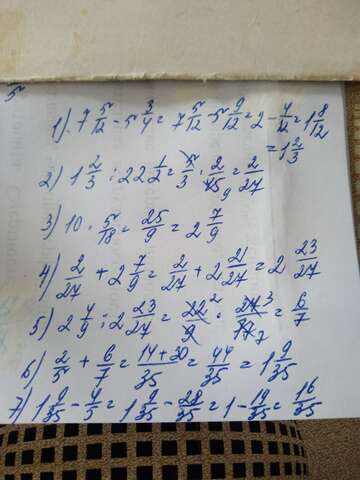 5
1) 7 5/12 - 5 3/4 = 7 5/12 - 5 9/12 = 2 - 4/12 = 1 8/12
= 1 2/3
2) 1 2/3 : 22 1/2 = 5/3 · 2/45 9 = 2/27
3) 10 · 5/18 = 25/9 = 2 7/9
4) 2/27 + 2 7/9 = 2/27 + 2 21/27 = 2 23/27
5) 2 4/9 : 2 23/27 = 22 2/9 · 27 3/77 7 = 6/7
6) 2/5 + 6/7 = 14+30/35 = 44/35 = 1 9/35
7) 1 9/35 - 4/5 = 1 9/35 - 28/35 = 1 - 19/35 = 16/35